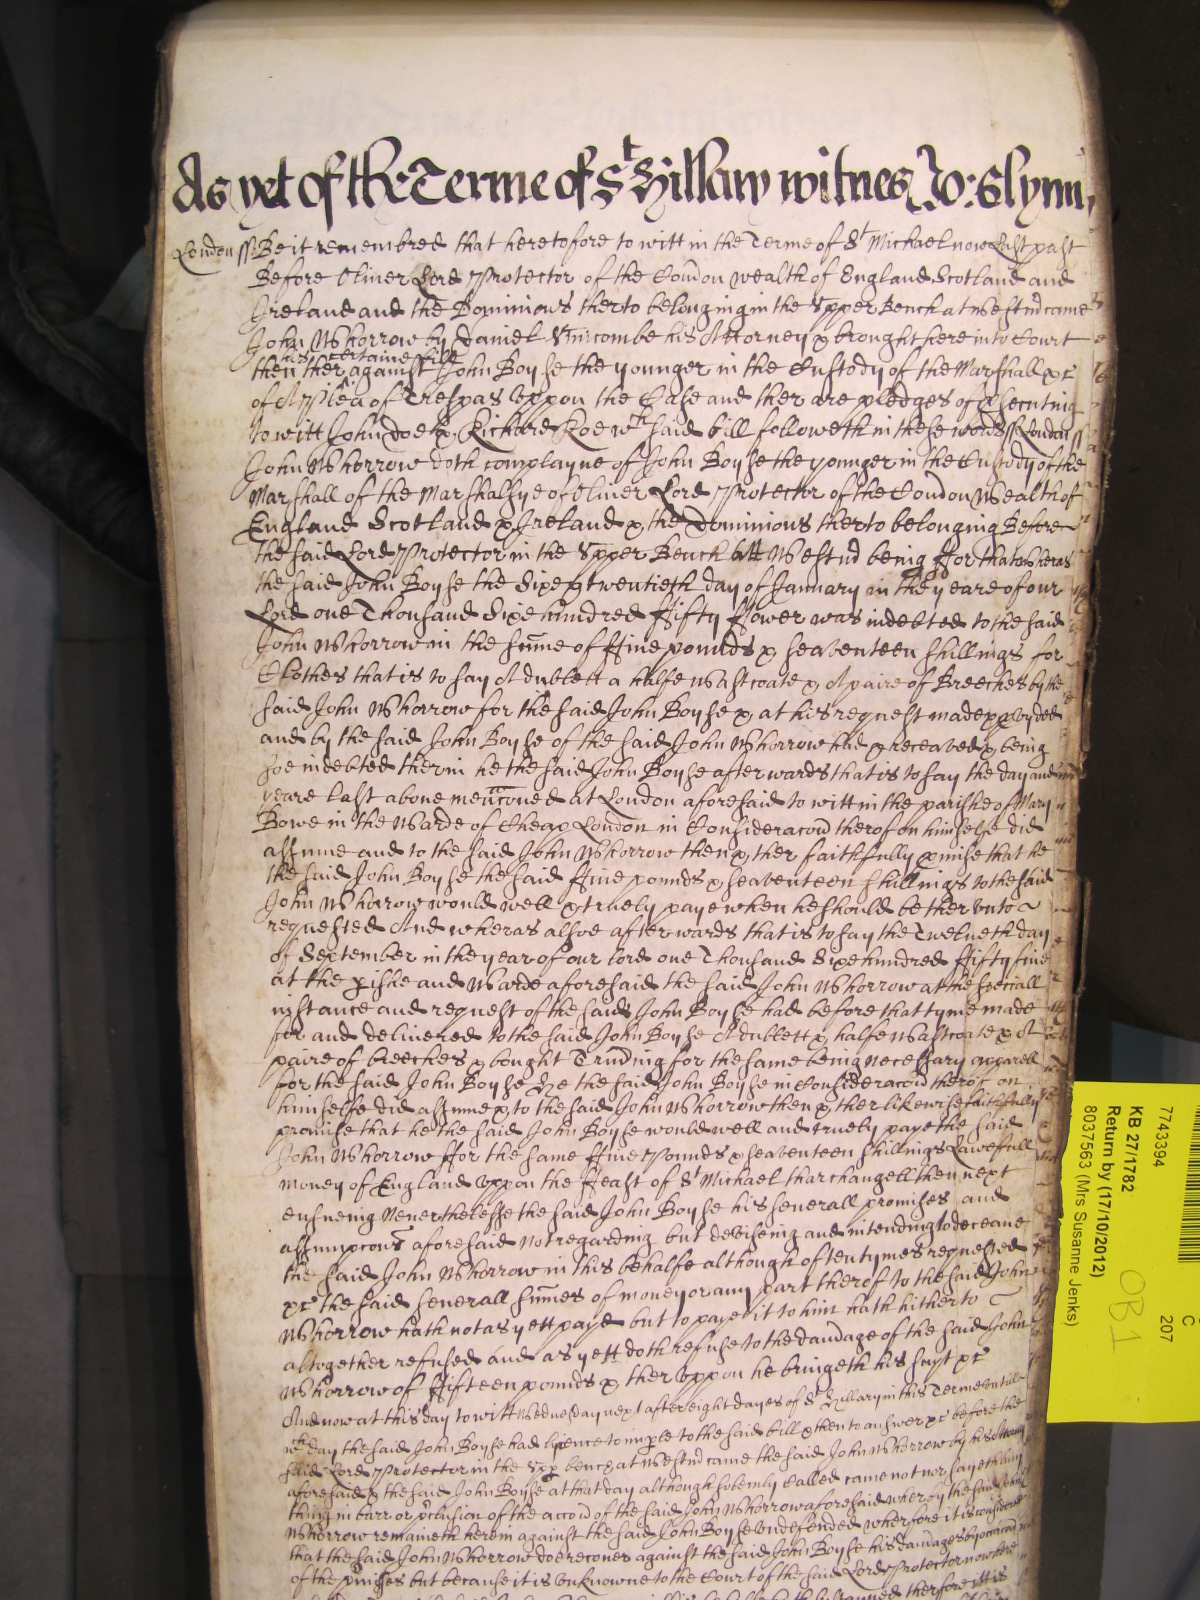 As yet of the Terme of St Hillary witnes Jo: Glynn
London ss Be it remembred that heretofore to witt in the Terme of St Michael now Last past
Before Oliver Lord Protector of the Common wealth of England Scotland and
Ireland and the Dominions therto belonging in the Upper Bench at Westmr came
John Whorrow by Daniel Vnicombe his Attorney & brought here into Court
his certaine bill
then ther against John Boyse the younger in the Custody of the Marshall &c
of A Plea of Trespas Uppon the Case and ther are pledges of psecuting
to witt John Doe & Richard Roe wch said bill followeth in these words ss London ss
John Whorrow doth complayne of John Boyse the younger in the Custody of the
Marshall of the Marshalsye of Oliver Lord Protector of the Common Wealth of
England Scotland & Ireland & the Dominions therto belonging Before
the said Lord Protector in the Upper Bench att Westmr being ffor that wheras
the said John Boyse the Sixe & twentieth day of January in the yeare of our
Lord one Thousand Sixe hundred ffifty ffower was indebted to the said
John Whorrow in the sume of ffive pounds & seaventeen shillings for
Clothes that is to say A dublett a halfe Wastcoate & A paire of Breeches by the
said John Whorrow for the said John Boyse & at his request made pvyded
and by the said John Boyse of the said John Whorrow had & receaved & being
soe indebted therin he the said John Boyse afterwards that is to say the day and
yeare last above mencioned at London aforesaid to witt in the parishe of Mary
Bowe in the Warde of Cheap London in Consideracion therof on himselfe did
assume and to the said John Whorrow then & ther faithfully pmise that he
the said John Boyse the said ffive pounds & seaventeen shillings to the said
John Whorrow would well & truely paye when he should be ther unto
requested And wheras alsoe afterwards that is to say the Twelveth day
of September in the year of our lord one Thousand Sixe hundred ffifty five
at the pishe and Warde aforesaid the said John Whorrow at the speciall
instance and request of the said John Boyse had before that tyme made
for and delivered to the said John Boyse A dublett & halfe Wastcoate & A
paire of breeches & bought Triming for the same being necessary apparell
for the said John Boyse He the said John Boyse in Consideracion therof on
himselfe did assume & to the said John Whorrow then & ther likewise faithfully
promise that he the said John Boyse would well and truely paye the said
John Whorrow ffor the same ffive Pounds & seaventeen shillings Lawefull
money of England Uppon the ffeast of St Michael tharchangell then next
ensueing Neverthelesse the said John Boyse his severall promises and
assumpcons aforesaid not regarding but deviseing and intending to deceave
the said John Whorrow in this behalfe although oftentymes requested
&c the said severall sumes of money or any part therof to the said John
Whorrow hath not as yett payd but to paye it to him hath hitherto
altogether refused and as yett doth refuse to the damage of the said John
Whorrow of ffifteen pounds & ther Uppon he bringeth his suyt &c
And now at this day to witt Wednesday next after eight dayes of St Hillary in this Terme untill
wch day the said John Boyse had lycence to imple to the said bill & then to answer &c before the
said Lord Protector in the Upp bench at Westmr came the said John Whorrow by his Attorney
aforesaid & the said John Boyse at that day although solemly Called came not nor sayeth any
thing in barr or pclusion of the accon of the said John Whorrow aforesaid wherby the said John
Whorrow remaineth herein against the said John Boyse undefended wherfore it is considered
that the said John Whorrow doe recover against the said John Boyse his damages by occacon
of the pmisses but because it is unknowne to the Court of the said Lord Protector now here
therfore itt is
7743394
KB 27/1782
Return by (17/10/2012)
8037563 (Mrs Susanne Jenks)
C
207
OB1